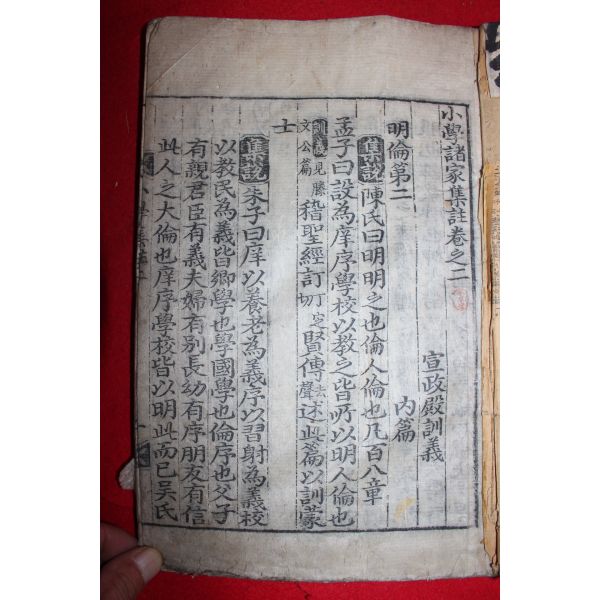 小學諸家集註卷之二
宣政殿訓義
明倫第二
內篇
集說陳氏曰明明之也倫人倫也凡百八章
孟子曰設為庠序學校以教之皆所以明人倫也
訓義見滕文公篇稽聖經訂切定賢傳去聲述此篇以訓蒙
士
集說朱子曰庠以養老為義序以習射為義校
以教民為義皆鄉學也學國學也倫序也父子
有親君臣有義夫婦有別長幼有序朋友有信
此人之大倫也庠序學校皆以明此而已吳氏